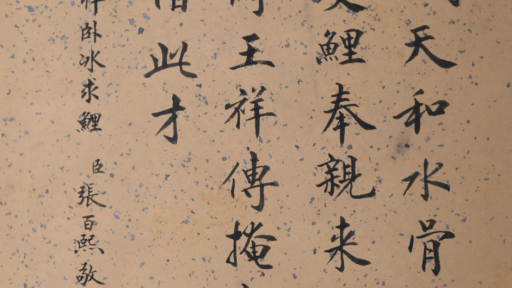 天和水骨
鯉奉親来
王祥傳掩
此才
卧冰求鯉 臣張百熙敬